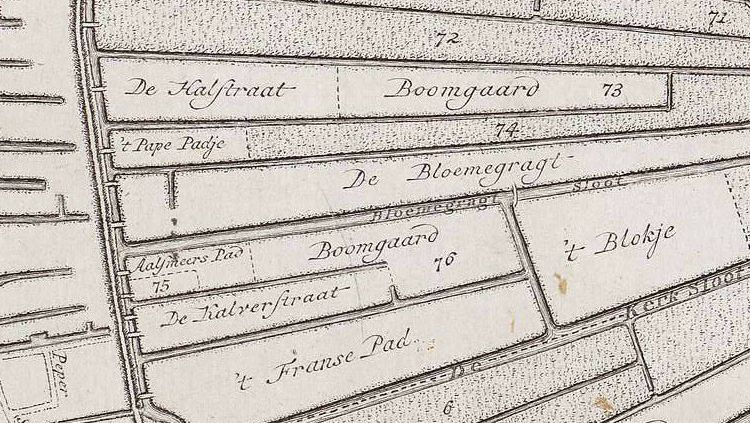 71
72
De Halstraat
Boomgaard 73
't Pape Padje
74
De Bloemegragt
Bloemegragt Sloot
't Blokje
Aalsmeers Pad
Boomgaard
75
76
De Kalverstraat
Kerk Sloot
't Franse Pad
De
Peper
6